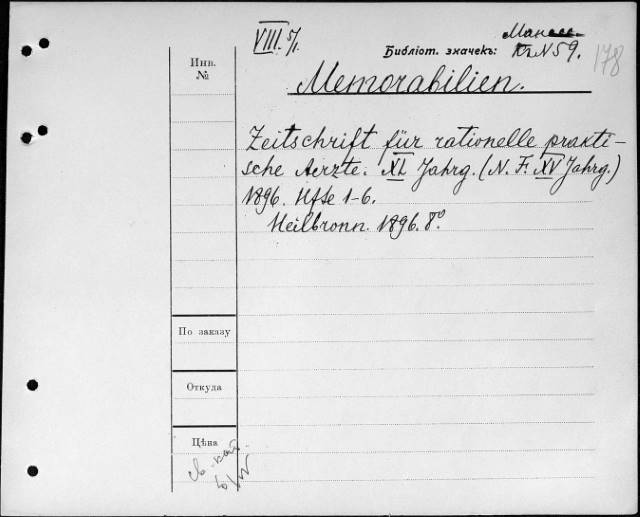 VIII. 5/1.
Инв.
№
Библіот. значекъ:
№ 59.
178
Memorabilien.
Zeitschrift für rationelle prakti-
sche Aerzte. XL Jahrg. (N. F. XV Jahrg.)
1896. Hfte 1-6.
Heilbronn. 1896. 8°.
По заказу
Откуда
Цѣна